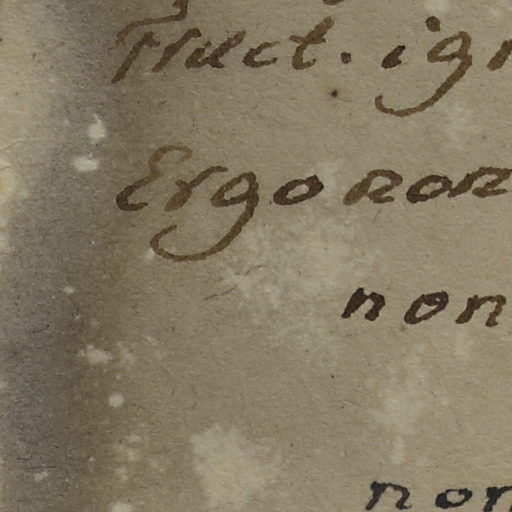 Fruct. ig
Ergo non
non
non